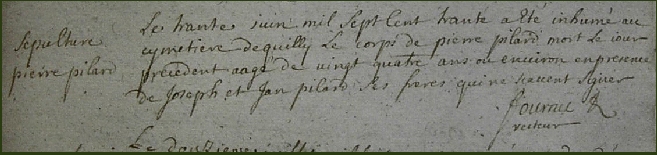 Sepulture
pierre pilard
Le trante juin mil Sept Cent trante a Eté inhumé au
cymetiere de quilly Le corps de pierre pilard mort Le iour
precedent aagé de vingt quatre ans ou environ en presence
de Joseph et Jan pilard Ses freres qui ne scavent Signer
recteur
Le douzieme